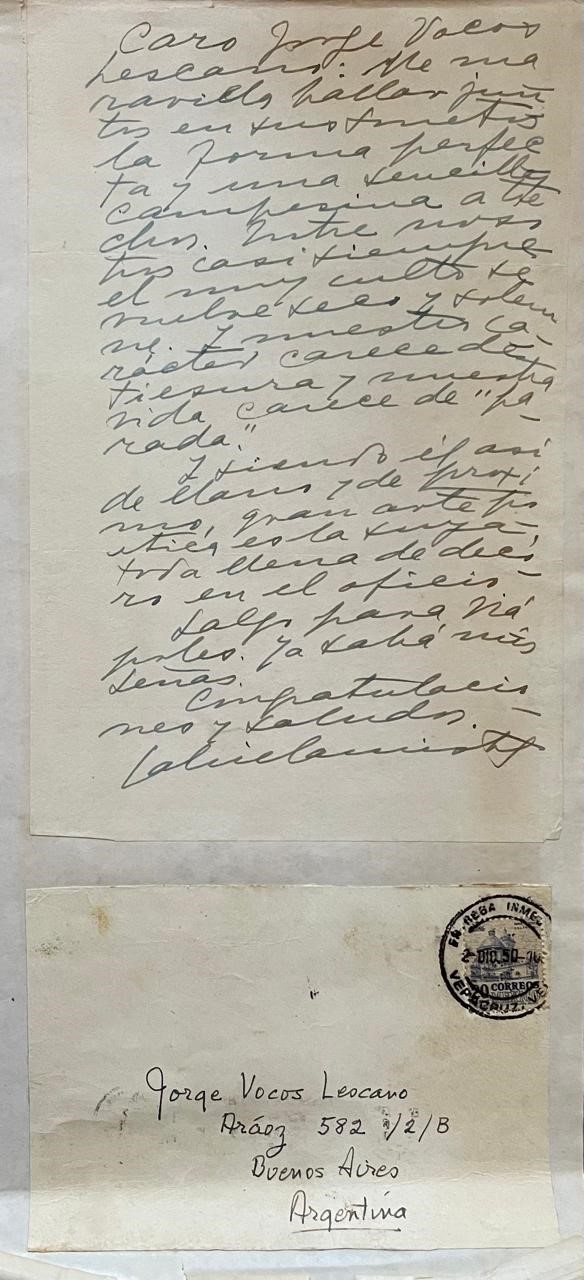 Caro Jorge Vocos
Lescano: Me ma
ravilla hallar jun
tos en sus sonetos
la forma perfec
ta y una sencillez
campesina a tre
chos. Entre noso
tros casi siempre
el muy culto se
vuelve seco y solem
ne. Y nuestro ca-
rácter carece de
tiesura y nuestra
vida carece de "pa-
rada".
Y siendo él así
de llano y de próxi
mo, gran arte po
ética es la suya,
toda llena de deco-
ro en el oficio.
Salgo para Ná
poles. Ya sabrá mis
señas.
Congratulacio-
nes y saludos.
Gabriela Mistral
ENTREGA INMED
2-DIC.50
20 CORREOS
VERACRUZ, VER
Jorge Vocos Lescano
Aráoz 582 1/2/B
Buenos Aires
Argentina